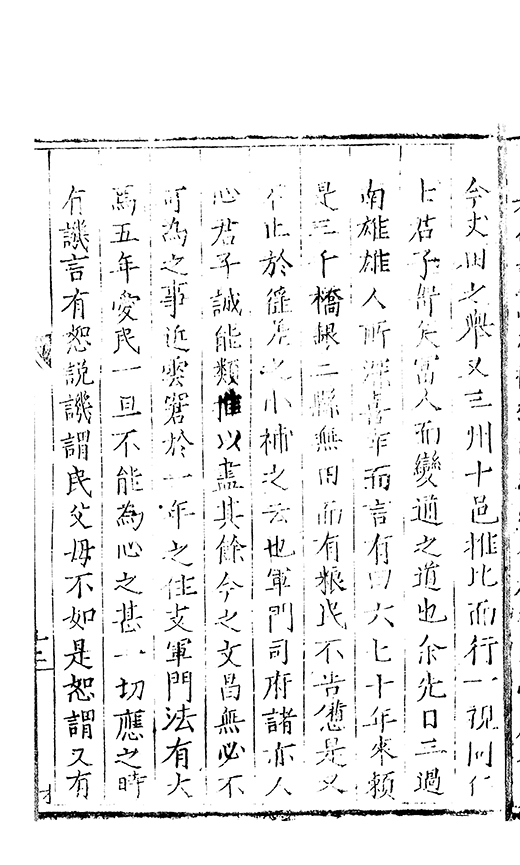 今丈田之舉又三州十邑推比而行一視同仁
上君子舒矣富人而變通之道也余先日三過
南雄雄人所深喜乍而言有曰六七十年來賴
是三千橋銀二縣無田而有粮民不告憊是又
不止於徭差之小補之云也軍門司府諸亦人
心君子誠能類推以盡其餘今之文昌無必不
可為之事近雲窘於一年之住支軍門法有大
為五年愛民一旦不能為心之甚一切應之時
有譏言有恕説譏謂民父母不如是恕謂又有
十二